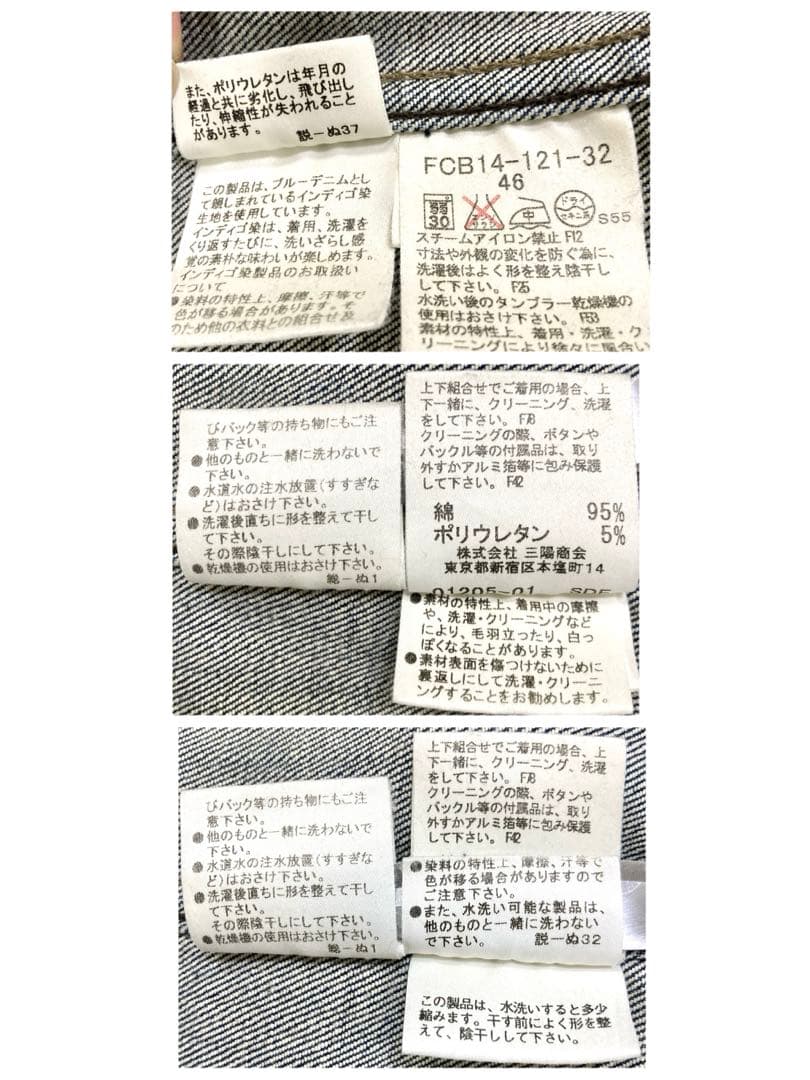 また、ポリウレタンは年月の
経過と共に劣化し、飛び出し
たり、伸縮性が失われること
があります。
説ーぬ37
この製品は、ブルーデニムとし
て親しまれているインディゴ染
生地を使用しています。
インディゴ染は、着用、洗濯を
くり返すたびに、洗いざらし感
覚の素朴な味わいが楽しめます。
インディゴ染製品のお取扱い
について
●染料の特性上、摩擦、汗等で
色が移る場合があります。そ
のため他の衣料との組合せ及
FCB14-121-32
46
弱
30
中
ドライ
セキユ系
S55
スチームアイロン禁止 F12
寸法や外観の変化を防ぐ為に、
洗濯後はよく形を整え陰干し
して下さい。 F25
水洗い後のタンブラー乾燥機の
使用はおさけ下さい。 F53
素材の特性上、着用・洗濯・ク
リーニングにより徐々に風合い
びバック等の持ち物にもご注
意下さい。
●他のものと一緒に洗わないで
下さい。
●水道水の注水放置(すすぎな
ど)はおさけ下さい。
●洗濯後直ちに形を整えて干し
て下さい。
その際陰干しにして下さい。
●乾燥機の使用はおさけ下さい。
総ーぬ1
上下組合せでご着用の場合、上
下一緒に、クリーニング、洗濯
をして下さい。 F78
クリーニングの際、ボタンや
バックル等の付属品は、取り
外すかアルミ箔等に包み保護
して下さい。 F42
綿 95%
ポリウレタン 5%
株式会社 三陽商会
東京都新宿区本塩町14
01205-01 SDF
●素材の特性上、着用中の摩擦
や、洗濯・クリーニングなど
により、毛羽立ったり、白っ
ぽくなることがあります。
●素材表面を傷つけないために
裏返しにして洗濯・クリーニ
ングすることをお勧めします。
びバック等の持ち物にもご注
意下さい。
●他のものと一緒に洗わないで
下さい。
●水道水の注水放置(すすぎな
ど)はおさけ下さい。
●洗濯後直ちに形を整えて干し
て下さい。
その際陰干しにして下さい。
●乾燥機の使用はおさけ下さい。
総ーぬ1
上下組合せでご着用の場合、上
下一緒に、クリーニング、洗濯
をして下さい。 F78
クリーニングの際、ボタンや
バックル等の付属品は、取り
外すかアルミ箔等に包み保護
して下さい。 F42
●染料の特性上、摩擦、汗等で
色が移る場合がありますので
ご注意下さい。
●また、水洗い可能な製品は、
他のものと一緒に洗わない
で下さい。 説ーぬ32
この製品は、水洗いすると多少
縮みます。干す前によく形を整
えて、陰干しして下さい。